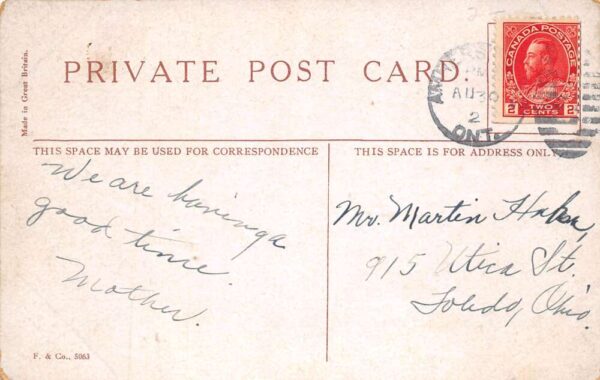 Made in Great Britain.
PRIVATE POST CARD.
CANADA POSTAGE
2 2
TWO
CENTS
PM
AU 30
2
ONT.
THIS SPACE MAY BE USED FOR CORRESPONDENCE
THIS SPACE IS FOR ADDRESS ONLY.
We are having a
good time.
Mother.
Mr. Martin
915 Utica St.
Toledo, Ohio.
F. & Co., 5063